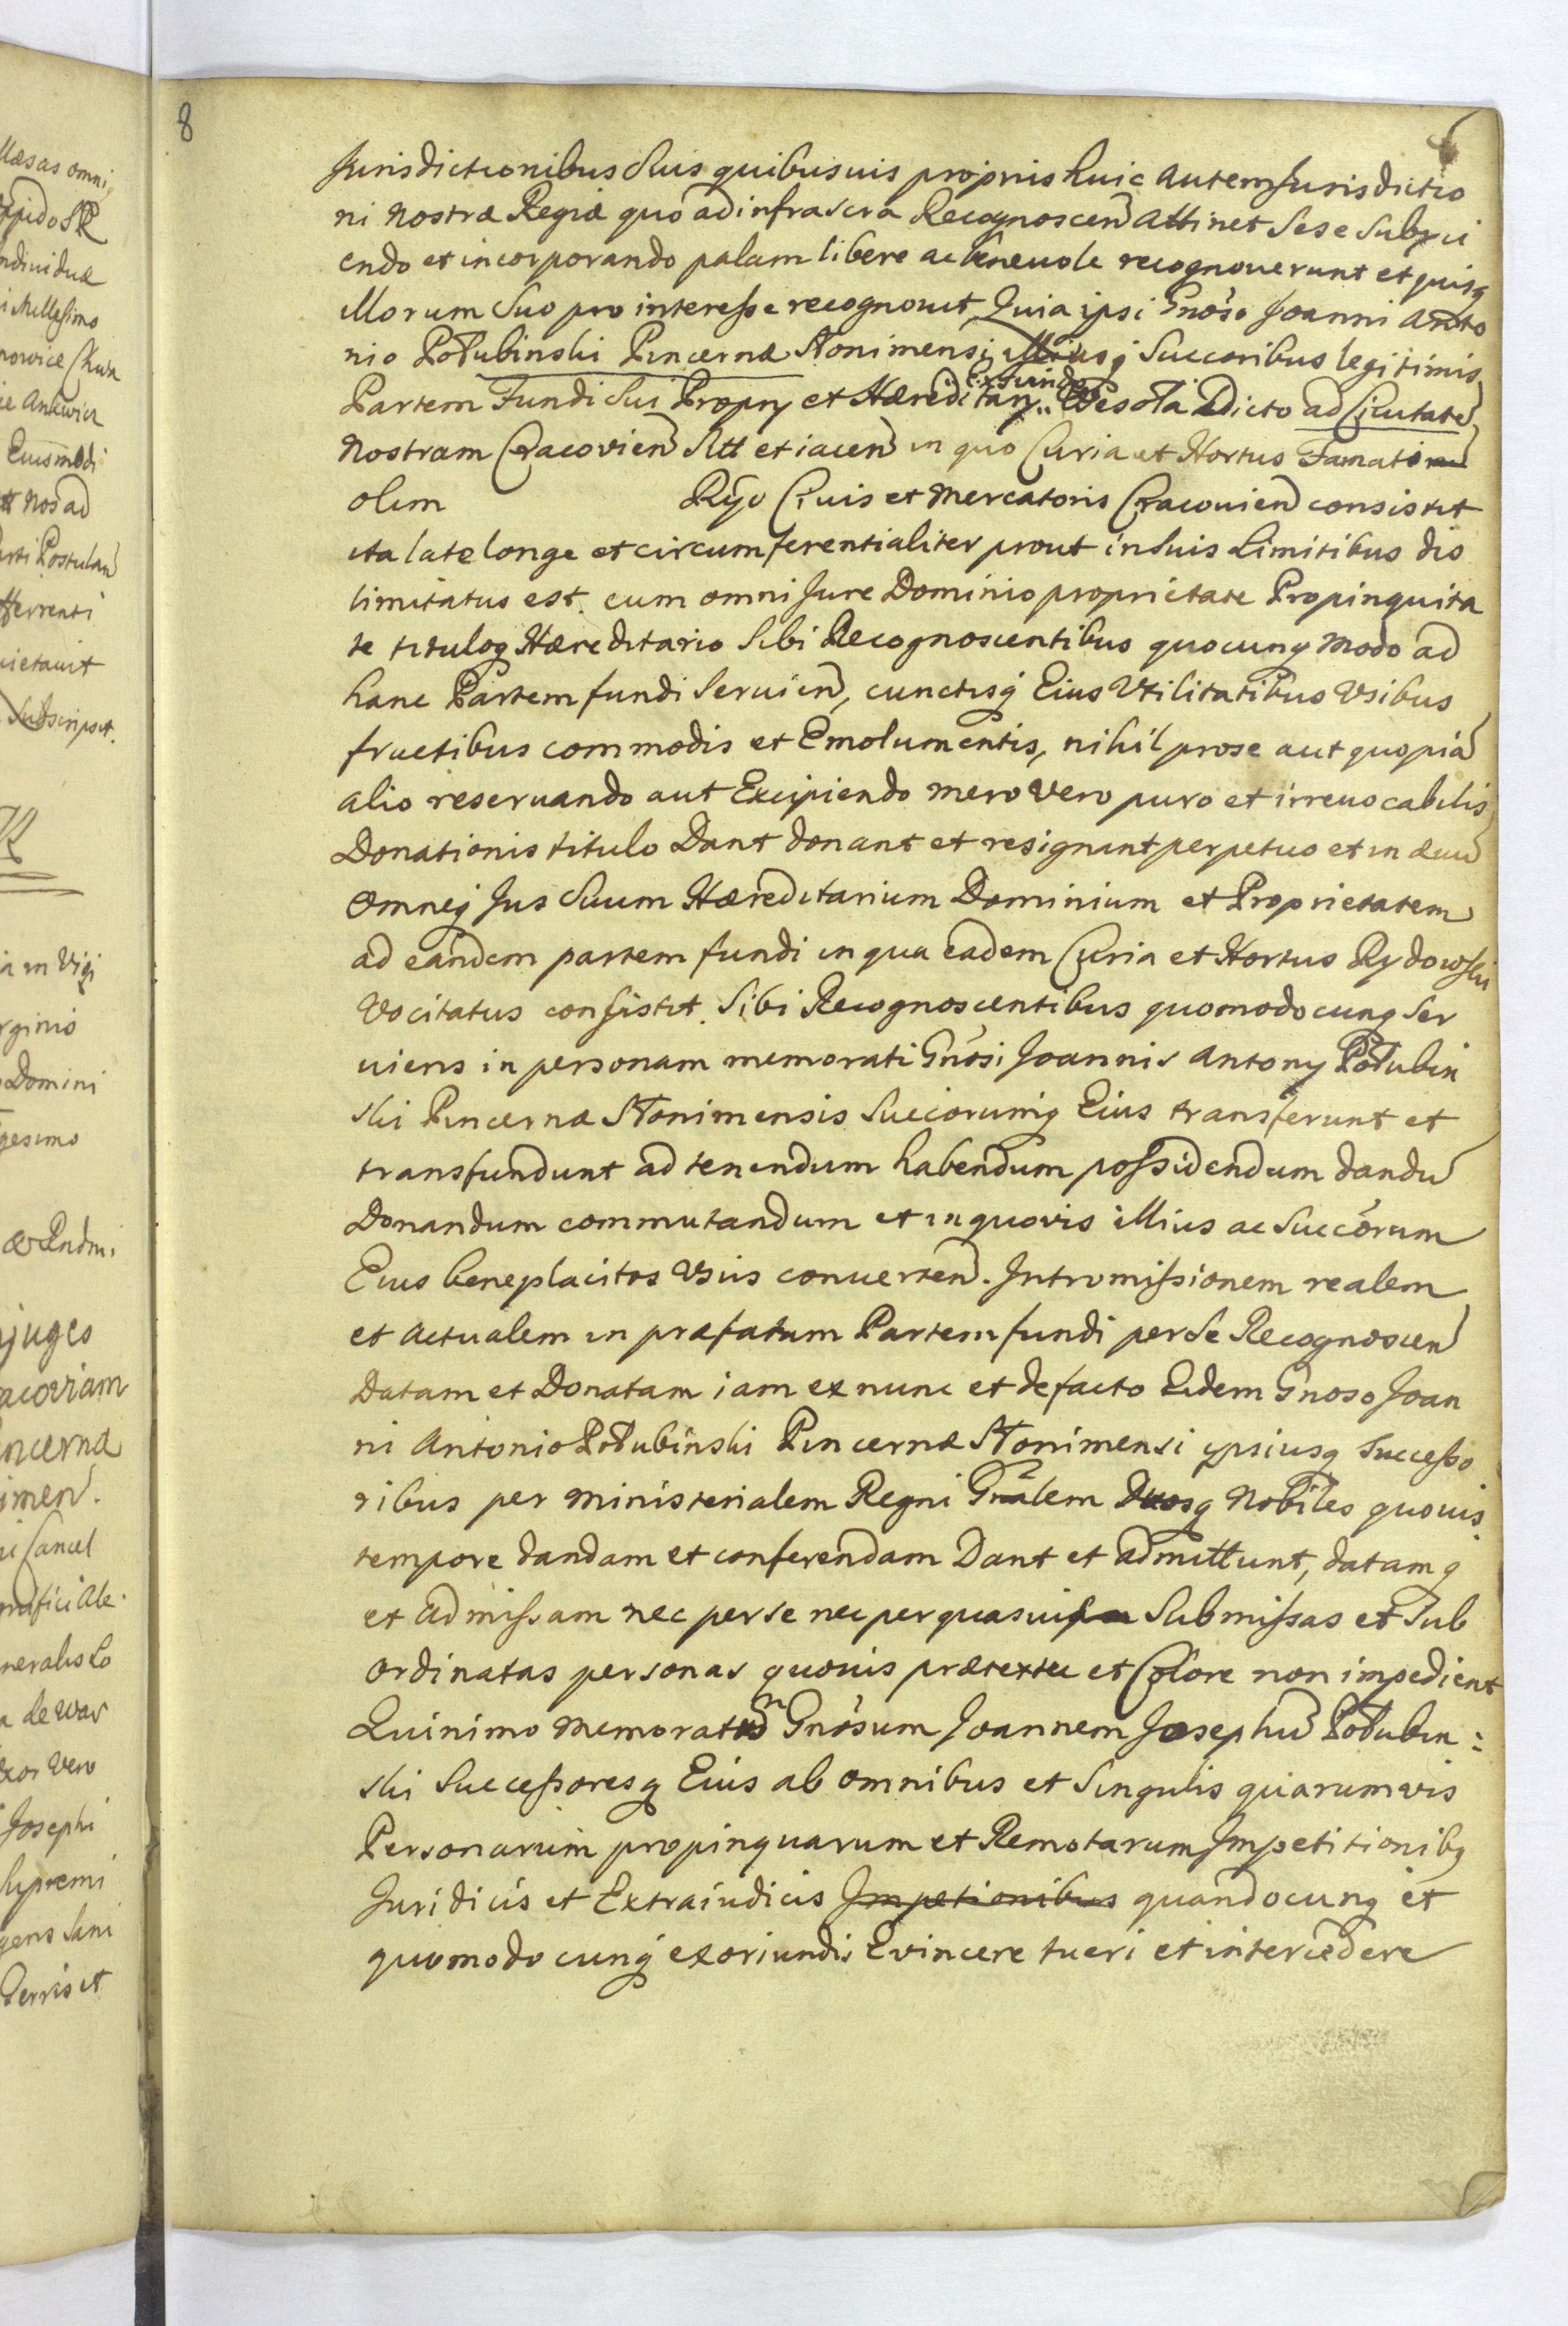 8
Jurisdictionibus Suis quibusuis proprijs huic autem Jurisdictio
ni nostræ Regiæ quo ad infrascra Recognoscen attinet Sese Subyci
endo et incorporando palam libere ac beneuole recognouerunt et quisq
illorum Suo pro interesse recognouit, Quia ipsi Gnoso Joanni Anto
nio Połubinski Pincernæ Słonimensi illiusq Succoribus legitimis
Partem Fundi Sui Propry et Hæreditary Extunde Wesoła dicto ad Ciuitate
nostram Cracovien Sitt et iacen in quo Curia et Hortus Famati
olim Ryo Ciuis et Mercatoris Cracouien consistit
ita late longe et circumferentialiter prout in Suis Limitibus dis
limitatus est. cum omni Jure Dominio proprietate Propinquita
te tituloq Hæreditario Sibi Recognoscentibus quocunq modo ad
hanc Partem fundi Seruien, cunctisq Eius Vtilitatibus Vsibus
fructibus commodis et Emolumentis, nihil pro se aut quopia
alio reseruando aut Excipiendo mero Vero puro et irreuocabilis
Donationis titulo Dant donant et resignant perpetuo et in æuu
Omneq Jus Suum Hæreditarium Dominium et Proprietatem
ad eandem partem fundi in qua eadem Curia et Hortus Rydowski
Vocitatus consistit. Sibi Recognoscentibus quomodocunq Ser
uiens in personam memorati Gnosi Joannis Antony Połubin
ski Pincernæ Słonimensis Succorumq Eius transferunt et
transfundunt ad tenendum habendum possidendum dandu
Donandum commutandum et in quovis illius ac Succorum
Eius beneplacitos Vsus conuerten. Intromissionem realem
et actualem in præfatam Partem fundi per Se Recognoscen
Datam et Donatam iam ex nunc et de facto Eidem Gnoso Joan
ni Antonio Połubinski Pincernæ Słonimensi ipsiusq Successo
ribus per ministerialem Regni Gnalem Duosq Nobiles quouis
tempore dandam et conferendam Dant et admittunt, datamq
et admissam nec per se nec per quasuis Submissas et Sub
ordinatas personas quouis prætextu et Colore non impedient
Quinimo memoratum Gnosum Joannem Josephu Połubin:
ski Successoresq Eius ab omnibus et Singulis quarumvis
Personarum propinquarum et Remotarum Impetitionibq
Juridicis et Extraiudicis Impetionibus quandocunq et
quomodocunq exoriundis Evincere tueri et intercedere